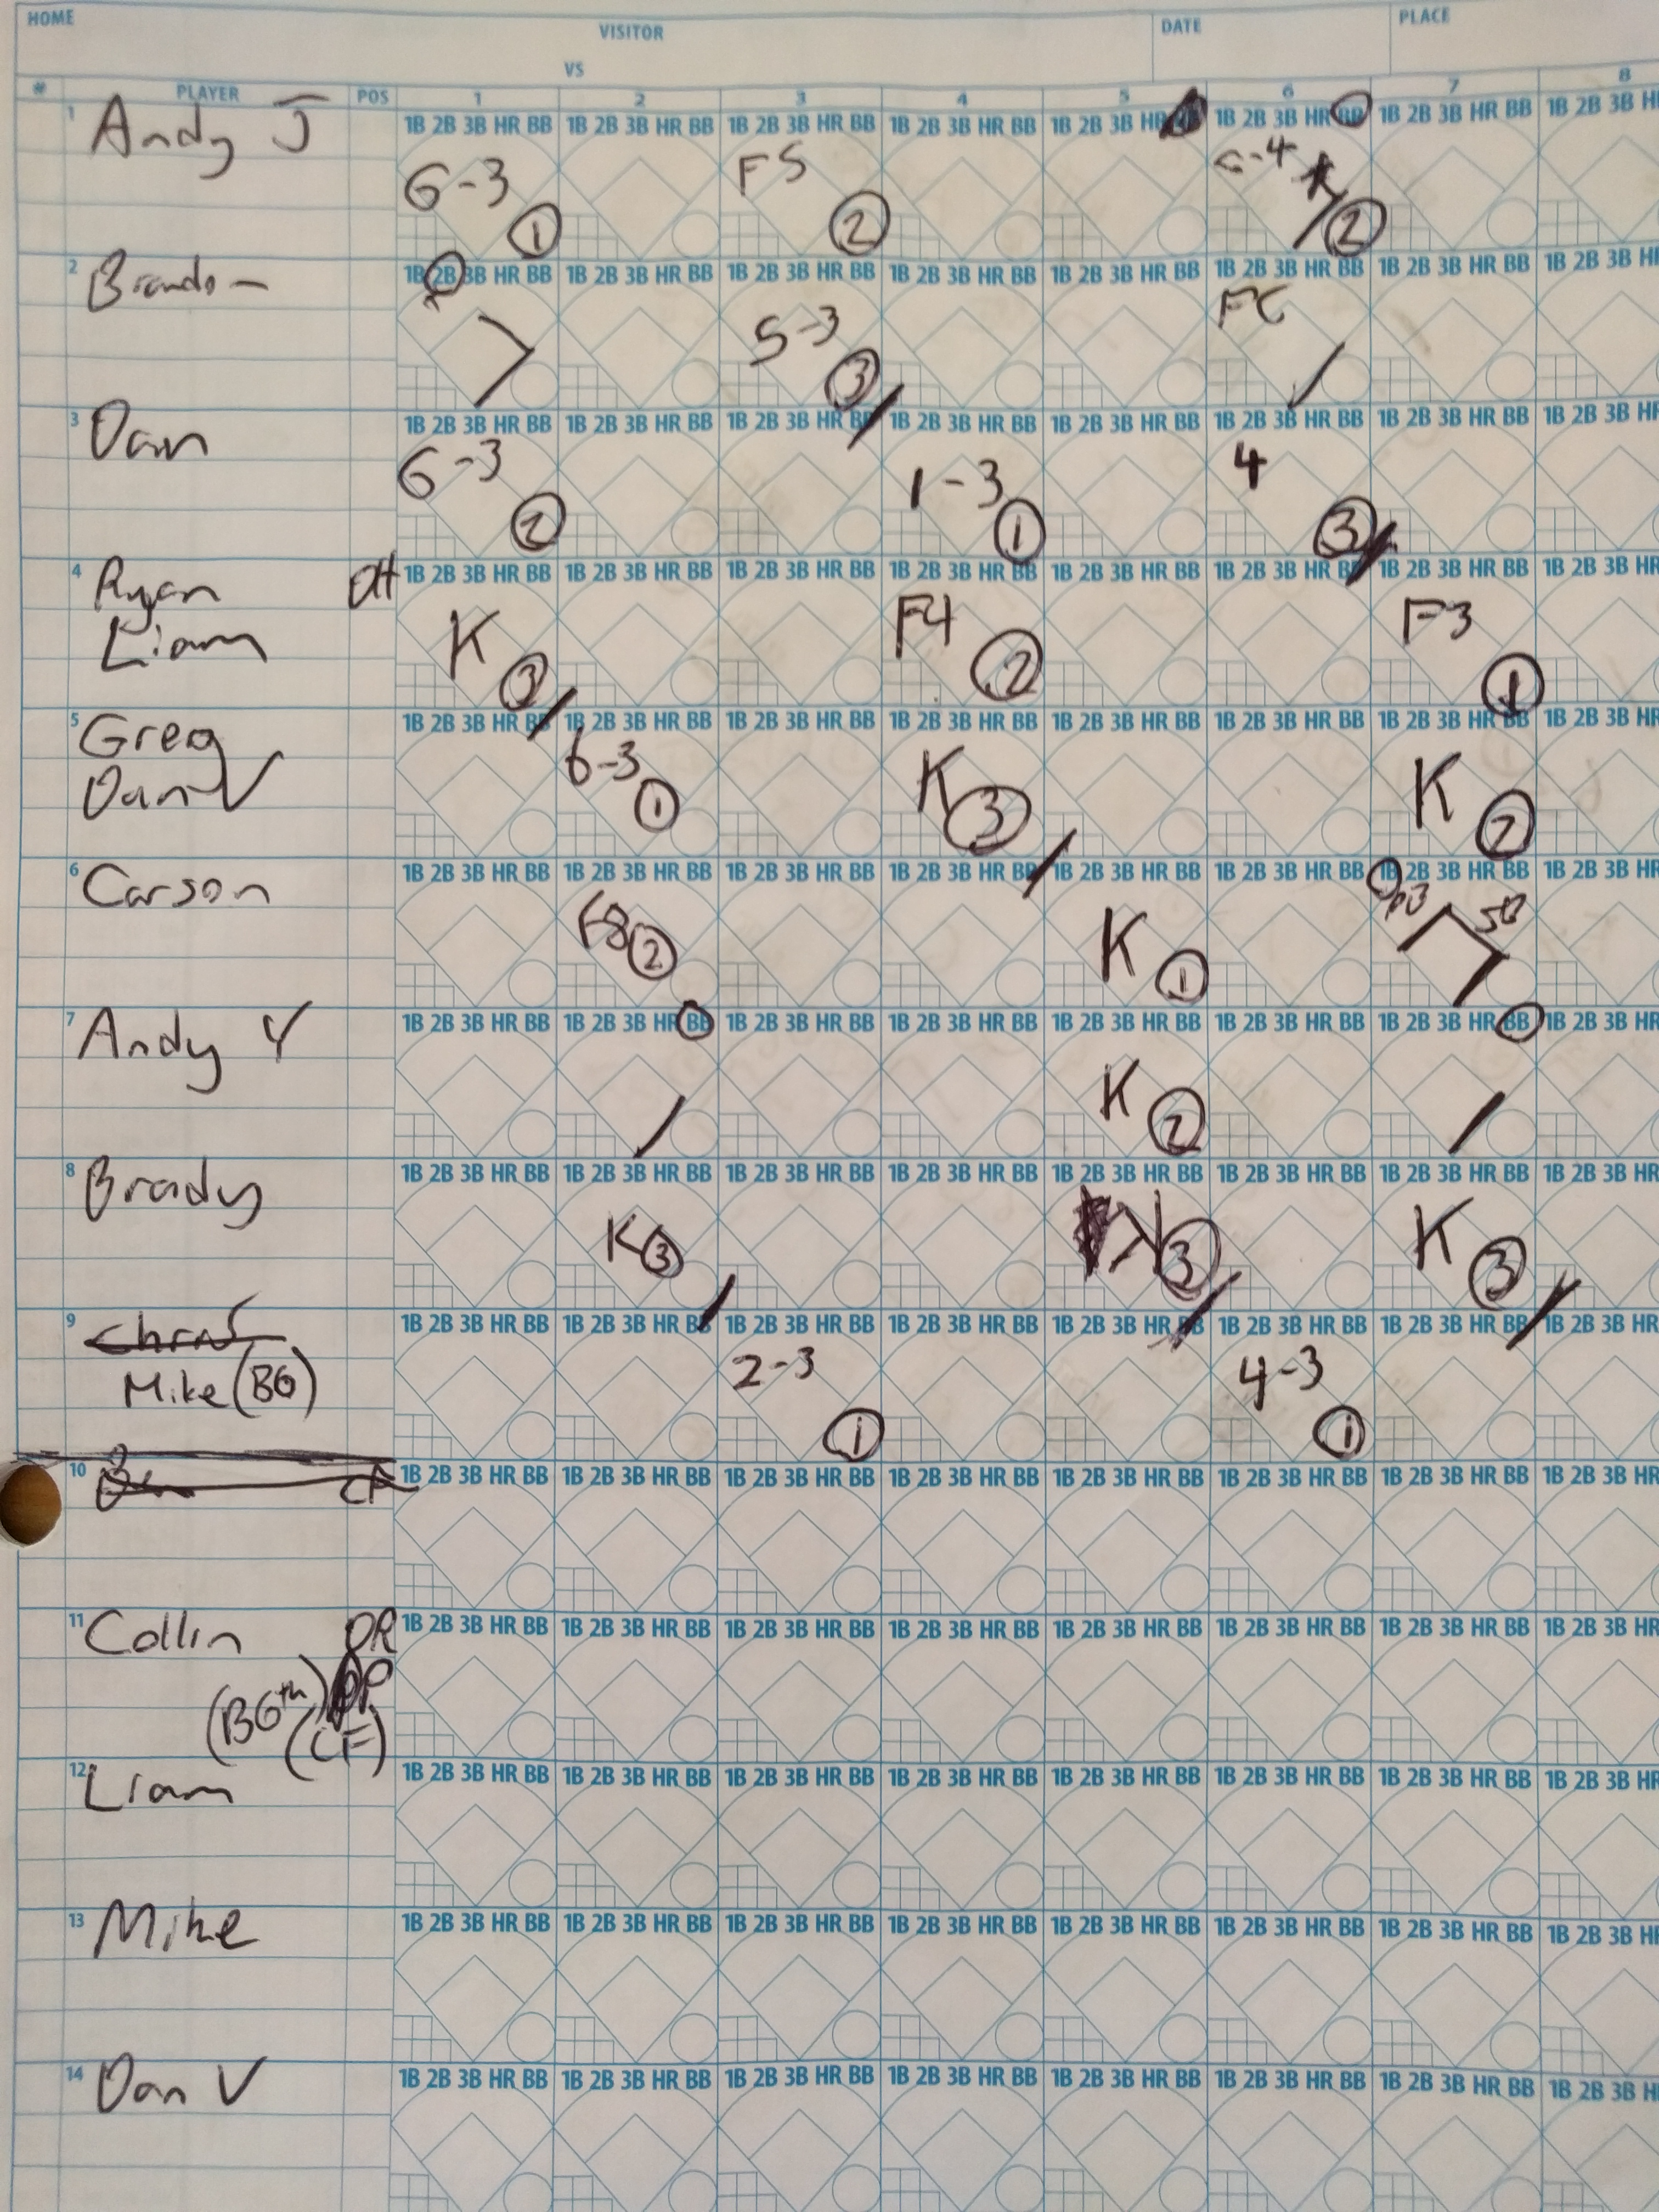 HOME VISITOR DATE PLACE
VS
# PLAYER POS 1 2 3 4 5 6 7 8
1 Andy J 1B 2B 3B HR BB 1B 2B 3B HR BB 1B 2B 3B HR BB 1B 2B 3B HR BB 1B 2B 3B HR 1B 2B 3B HR BB 1B 2B 3B HR BB 1B 2B 3B H
6-3 1 F5 2 6-4 2
2 Brandon 1B 2B 3B HR BB 1B 2B 3B HR BB 1B 2B 3B HR BB 1B 2B 3B HR BB 1B 2B 3B HR BB 1B 2B 3B HR BB 1B 2B 3B HR BB 1B 2B 3B H
5-3 3 FC
3 Dan 1B 2B 3B HR BB 1B 2B 3B HR BB 1B 2B 3B HR BB 1B 2B 3B HR BB 1B 2B 3B HR BB 1B 2B 3B HR BB 1B 2B 3B HR BB 1B 2B 3B HR
6-3 2 1-3 1 4 3
4 Ryan DH 1B 2B 3B HR BB 1B 2B 3B HR BB 1B 2B 3B HR BB 1B 2B 3B HR BB 1B 2B 3B HR BB 1B 2B 3B HR BB 1B 2B 3B HR BB 1B 2B 3B HR
Liam K 3 F4 2 F3 1
5 Greg 1B 2B 3B HR BB 1B 2B 3B HR BB 1B 2B 3B HR BB 1B 2B 3B HR BB 1B 2B 3B HR BB 1B 2B 3B HR BB 1B 2B 3B HR BB 1B 2B 3B HR
Dan V 6-3 1 K 3 K 2
6 Carson 1B 2B 3B HR BB 1B 2B 3B HR BB 1B 2B 3B HR BB 1B 2B 3B HR BB 1B 2B 3B HR BB 1B 2B 3B HR BB 1B 2B 3B HR BB 1B 2B 3B HR
F8 2 K 1 SB
7 Andy Y 1B 2B 3B HR BB 1B 2B 3B HR BB 1B 2B 3B HR BB 1B 2B 3B HR BB 1B 2B 3B HR BB 1B 2B 3B HR BB 1B 2B 3B HR BB 1B 2B 3B HR
K 2
8 Brady 1B 2B 3B HR BB 1B 2B 3B HR BB 1B 2B 3B HR BB 1B 2B 3B HR BB 1B 2B 3B HR BB 1B 2B 3B HR BB 1B 2B 3B HR BB 1B 2B 3B HR
K 3 3 K 3
9 Chris 1B 2B 3B HR BB 1B 2B 3B HR BB 1B 2B 3B HR BB 1B 2B 3B HR BB 1B 2B 3B HR BB 1B 2B 3B HR BB 1B 2B 3B HR BB 1B 2B 3B HR
Mike (B6) 2-3 1 4-3 1
10 CF 1B 2B 3B HR BB 1B 2B 3B HR BB 1B 2B 3B HR BB 1B 2B 3B HR BB 1B 2B 3B HR BB 1B 2B 3B HR BB 1B 2B 3B HR BB 1B 2B 3B HR
11 Collin PR 1B 2B 3B HR BB 1B 2B 3B HR BB 1B 2B 3B HR BB 1B 2B 3B HR BB 1B 2B 3B HR BB 1B 2B 3B HR BB 1B 2B 3B HR BB 1B 2B 3B HR
(B6th)
(CF)
12 Liam 1B 2B 3B HR BB 1B 2B 3B HR BB 1B 2B 3B HR BB 1B 2B 3B HR BB 1B 2B 3B HR BB 1B 2B 3B HR BB 1B 2B 3B HR BB 1B 2B 3B HR
13 Mike 1B 2B 3B HR BB 1B 2B 3B HR BB 1B 2B 3B HR BB 1B 2B 3B HR BB 1B 2B 3B HR BB 1B 2B 3B HR BB 1B 2B 3B HR BB 1B 2B 3B H
14 Dan V 1B 2B 3B HR BB 1B 2B 3B HR BB 1B 2B 3B HR BB 1B 2B 3B HR BB 1B 2B 3B HR BB 1B 2B 3B HR BB 1B 2B 3B HR BB 1B 2B 3B H